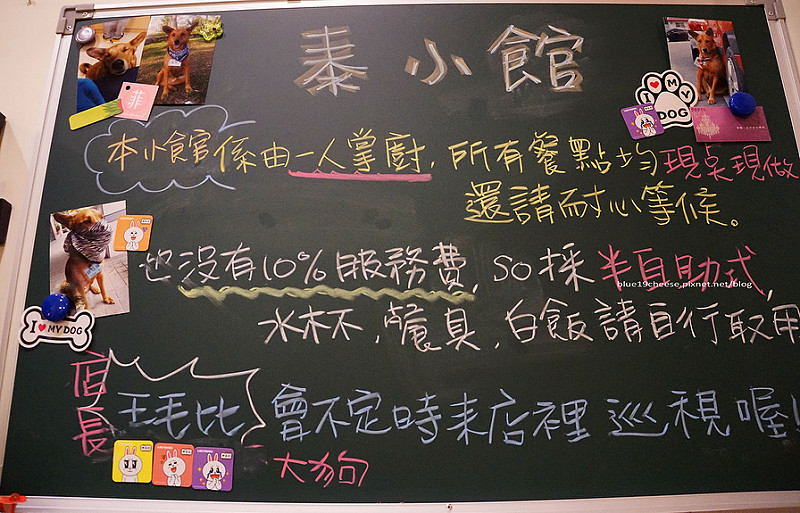 泰小館
I ♥ MY DOG
菲
本小館係由一人掌廚,所有餐點均現桌現做
還請耐心等候。
也沒有10%服務費,So採半自助式,
blue19cheese.pixnet.net/blog
水杯,餐具,白飯請自行取用
I ♥ MY DOG
店長 王毛比 會不定時來店裡巡視喔!
大狗